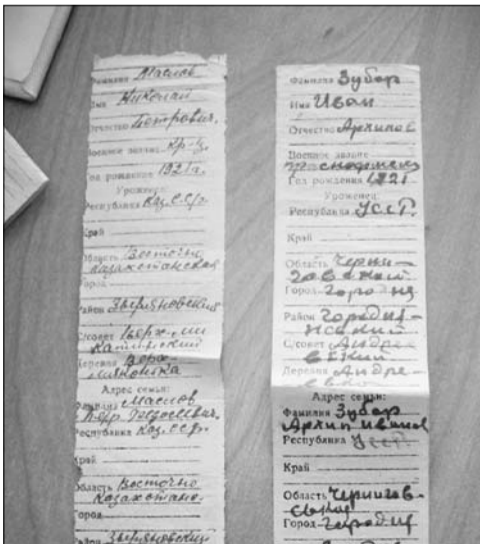 Фамилия Маслов
Имя Николай
Отчество Петрович.
Военное звание Кр-ц.
Год рождения 1921 г.
Уроженец:
Республика Каз.С.С.р.
Край
Область Восточно
Казахстанская
Город
Район Зыряновский
С/совет Верх-
Деревня Верх-
Адрес семьи:
Фамилия Маслов
Республика Каз.с.с.р.
Край
Область Восточно
Казахстанс.
Город
Район Зыряновский
Фамилия Зубар
Имя Иван
Отчество Архипов
Военное звание
красноармеец
Год рождения 1921
Уроженец:
Республика УссР.
Край
Область Черни-
говский
Город Городня
Район Городня-
нский
С/совет Андрее
вский
Деревня Андре-
евка
Адрес семьи:
Фамилия Зубар
Архип Иванов
Республика УссР.
Край
Область Чернигов-
ская
Город